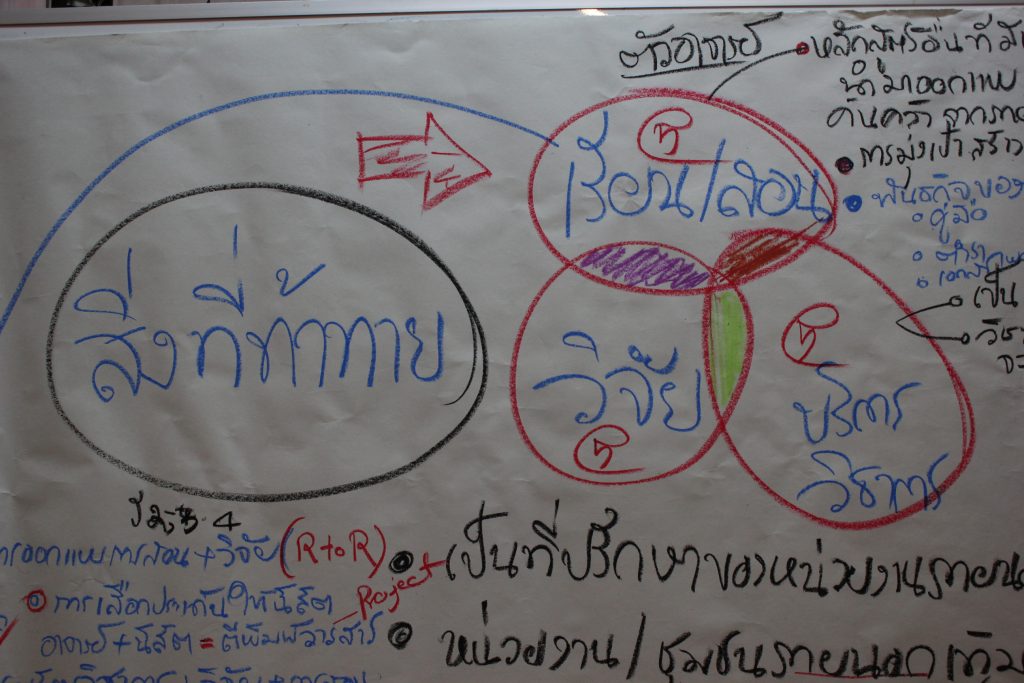 ตัวอาจารย์
หลักสูตรอื่นที่มี
นำมาออกแบบ
ค้นคว้า จากภาย
การมุ่งเป้าสร้าง
พันธกิจของ
คู่มือ
ตำรา
เป็น
เรียน/สอน
5
สิ่งที่ท้าทาย
วิจัย
5
5
บริการ
วิชาการ
4
การออกแบบการสอน + วิจัย (R to R)
การเลือกประเด็นให้นิสิต
Project
อาจารย์ + นิสิต = ตีพิมพ์วารสาร
เป็นที่ปรึกษาของหน่วยงานภายน
หน่วยงาน / ชุมชนภายนอก